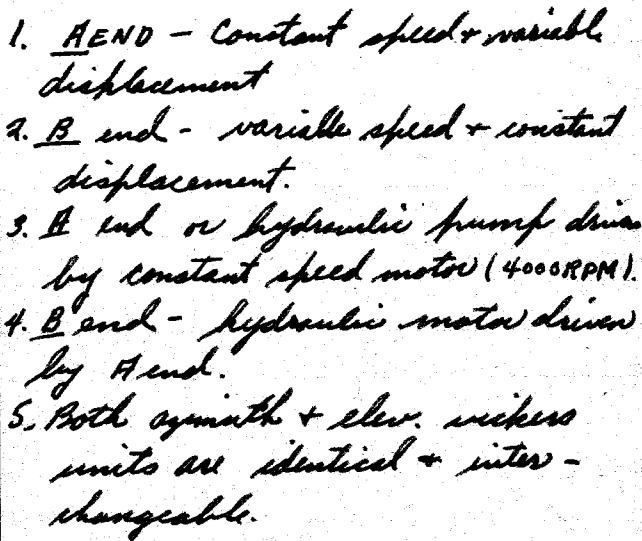 1. A END - Constant speed + variable
displacement
2. B end - variable speed + constant
displacement.
3. A end or hydraulic pump driven
by constant speed motor (4000RPM).
4. B end - hydraulic motor driven
by A end.
5. Both azimuth + elev. vickers
units are identical + inter-
changeable.